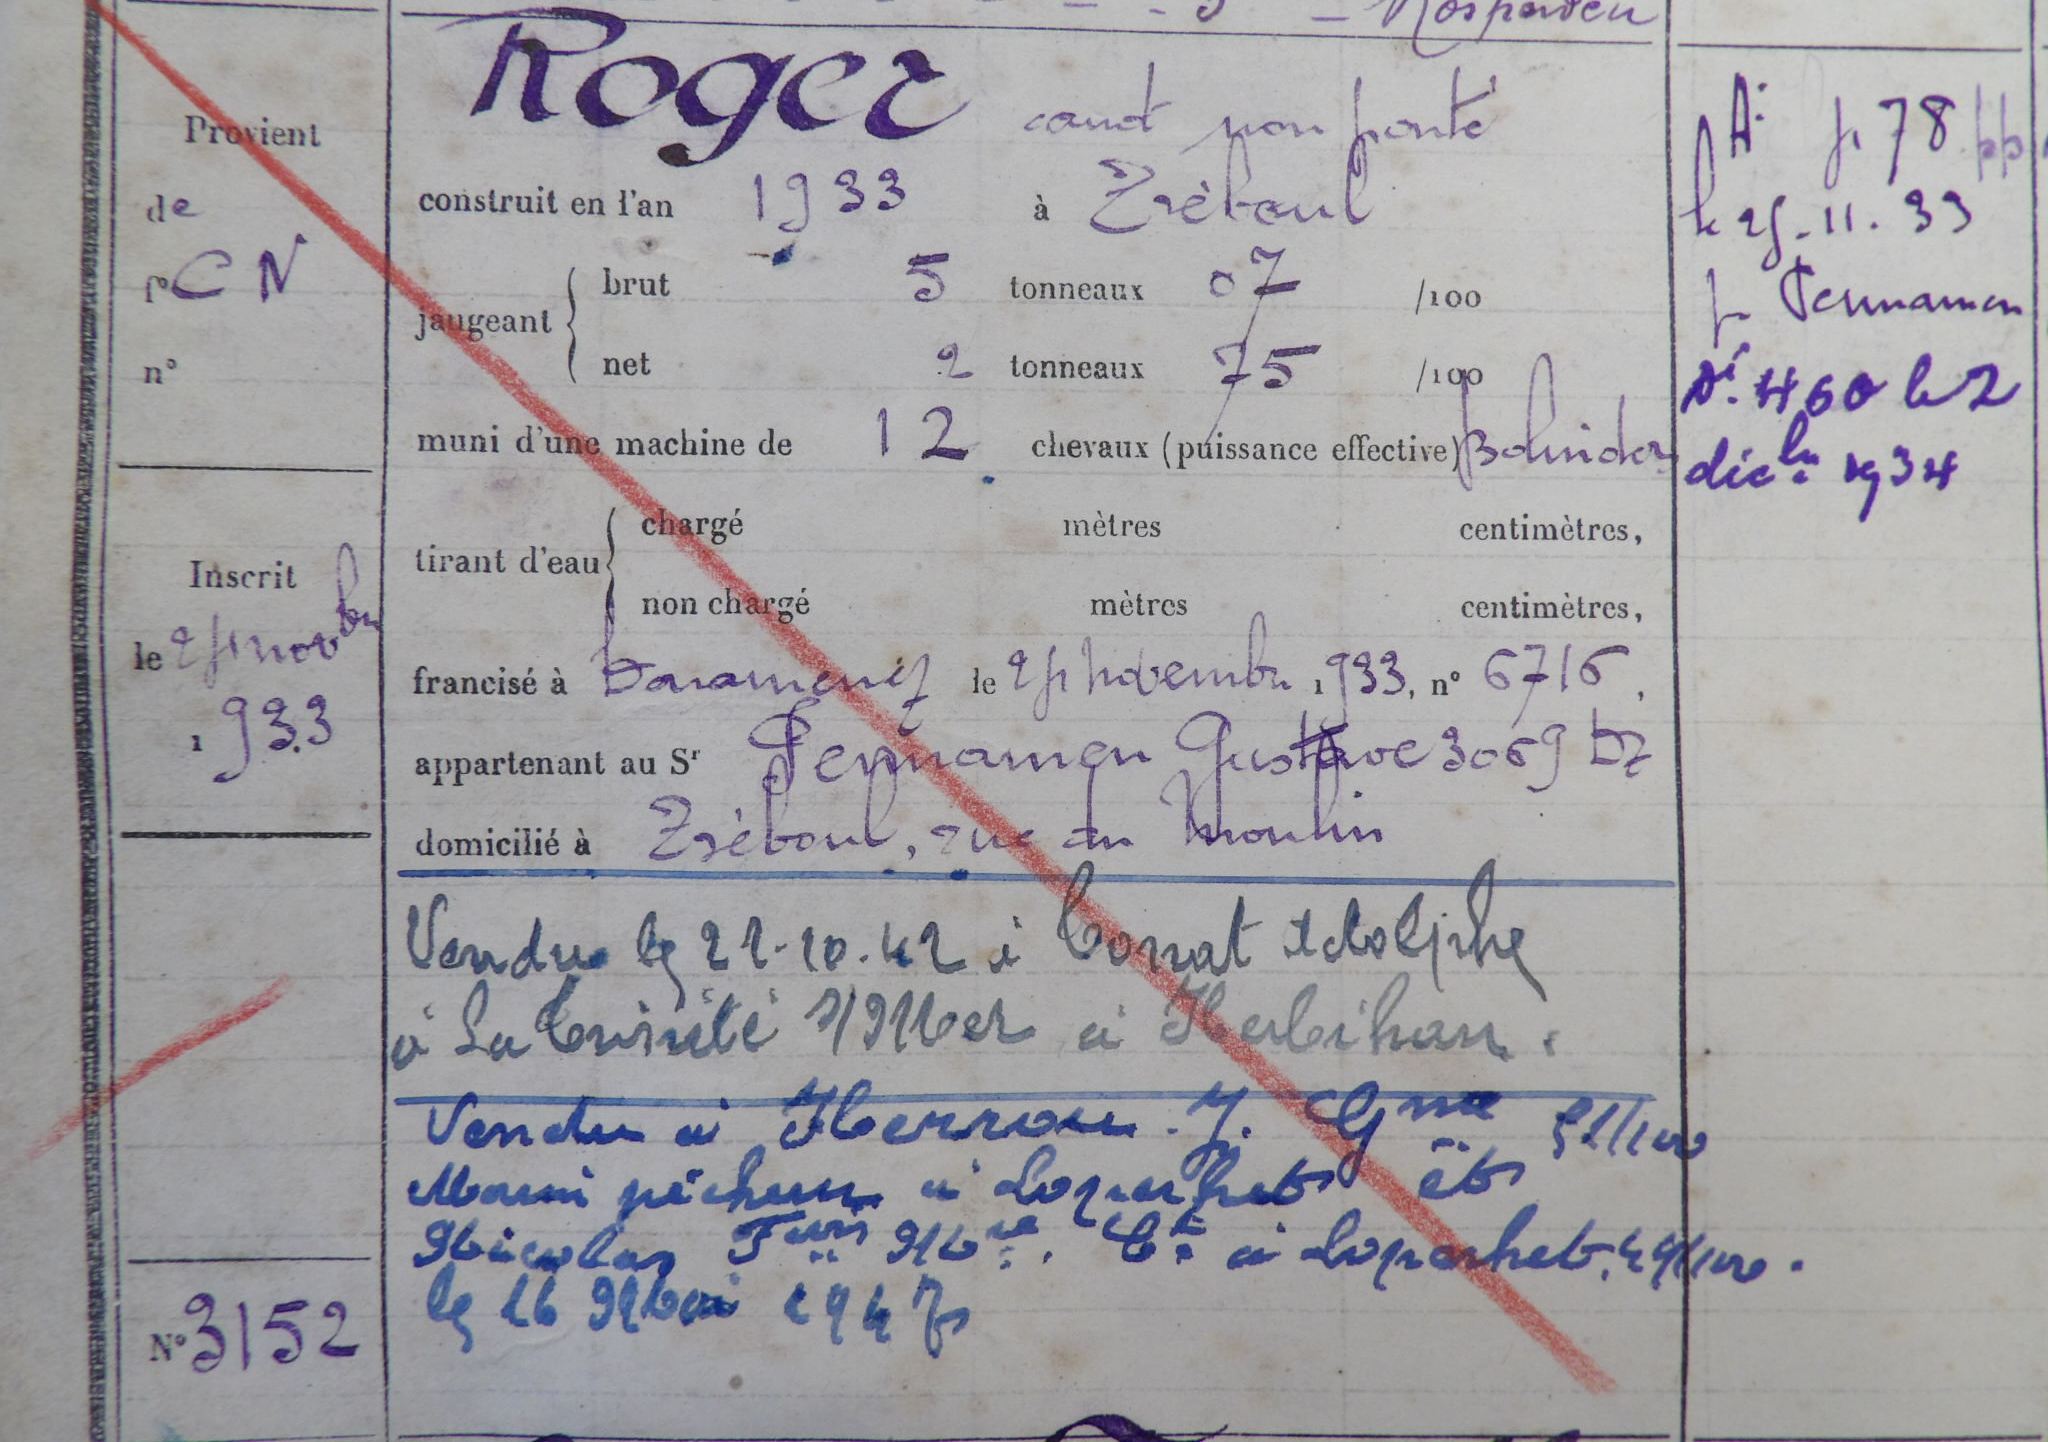 Rosporden
Roger canot non ponté
Provient
de
f° C N
n°
construit en l'an 1933 à Tréboul
jaugeant
brut 5 tonneaux 07 /100
net 2 tonneaux 75 /100
muni d'une machine de 12 chevaux (puissance effective) Bolinder
tirant d'eau
chargé mètres centimètres,
non chargé mètres centimètres,
francisé à Douarnenez le 25 novembre 1933, n° 6716,
appartenant au Sr Pennamen Gustave 3069 DZ
domicilié à Tréboul, rue du Moulin
Inscrit
le 25 novbre
1933
Vendu le 22-10.42 à Conat Adolphe
à La Trinité s/Mer à Morbihan.
Vendu à Kerrou. J. Gme 51/100
Marin pêcheur à Loperhet et
Nicolas Fçois Mie. Ct à Loperhet. 49/100.
le 16 Mai 1947
N° 3152
At p 78 pp
le 25.11.33
p Pennamen
Dt. 460 le 2
décbre 1934